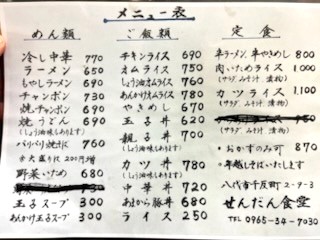 メニュー表
めん類
冷し中華 770
ラーメン 650
もやしラーメン 690
チャンポン 730
焼チャンポン 690
焼うどん 690
(しょう油味もあります)
バリバリ焼そば 760
※大盛りは200円増
野菜いため 680
玉子スープ 300
あんかけ玉子スープ 300
ご飯類
チキンライス 690
オムライス 750
しょう油オムライス 760
あんかけオムライス 760
やきめし 670
玉子丼 620
親子丼 700
(しょう油味もあります)
カツ丼 780
中華丼 720
あまから豚丼 680
ライス 250
定食
半ラーメン 半やきめし 800
肉いためライス 1,000
(サラダ みそ汁 漬物)
カツライス 1,100
(サラダ みそ汁 漬物)
・おかずのみ可 870
*年越しそばいたします
八代市千反町2-9-3
せんだん食堂
TEL 0965-34-7030